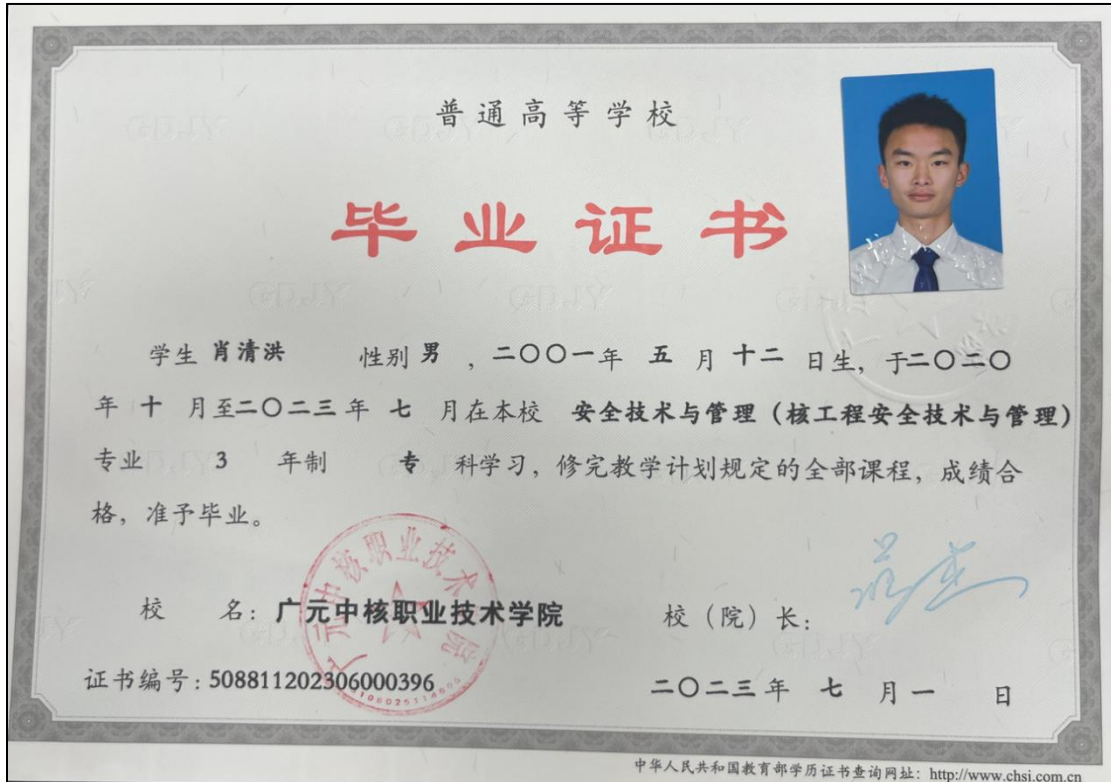 普通高等学校
毕业证书
学生 肖清洪 性别 男 , 二〇〇一年 五 月 十二 日生, 于二〇二〇
年 十 月至二〇二三 年 七 月在本校 安全技术与管理（核工程安全技术与管理）
专业 3 年制 专 科学习, 修完教学计划规定的全部课程, 成绩合
格, 准予毕业。
广元中核职业技术学院
校 名: 广元中核职业技术学院 校（院）长:
证书编号: 508811202306000396 二〇二三 年 七 月 一 日
中华人民共和国教育部学历证书查询网址: http://www.chsi.com.cn